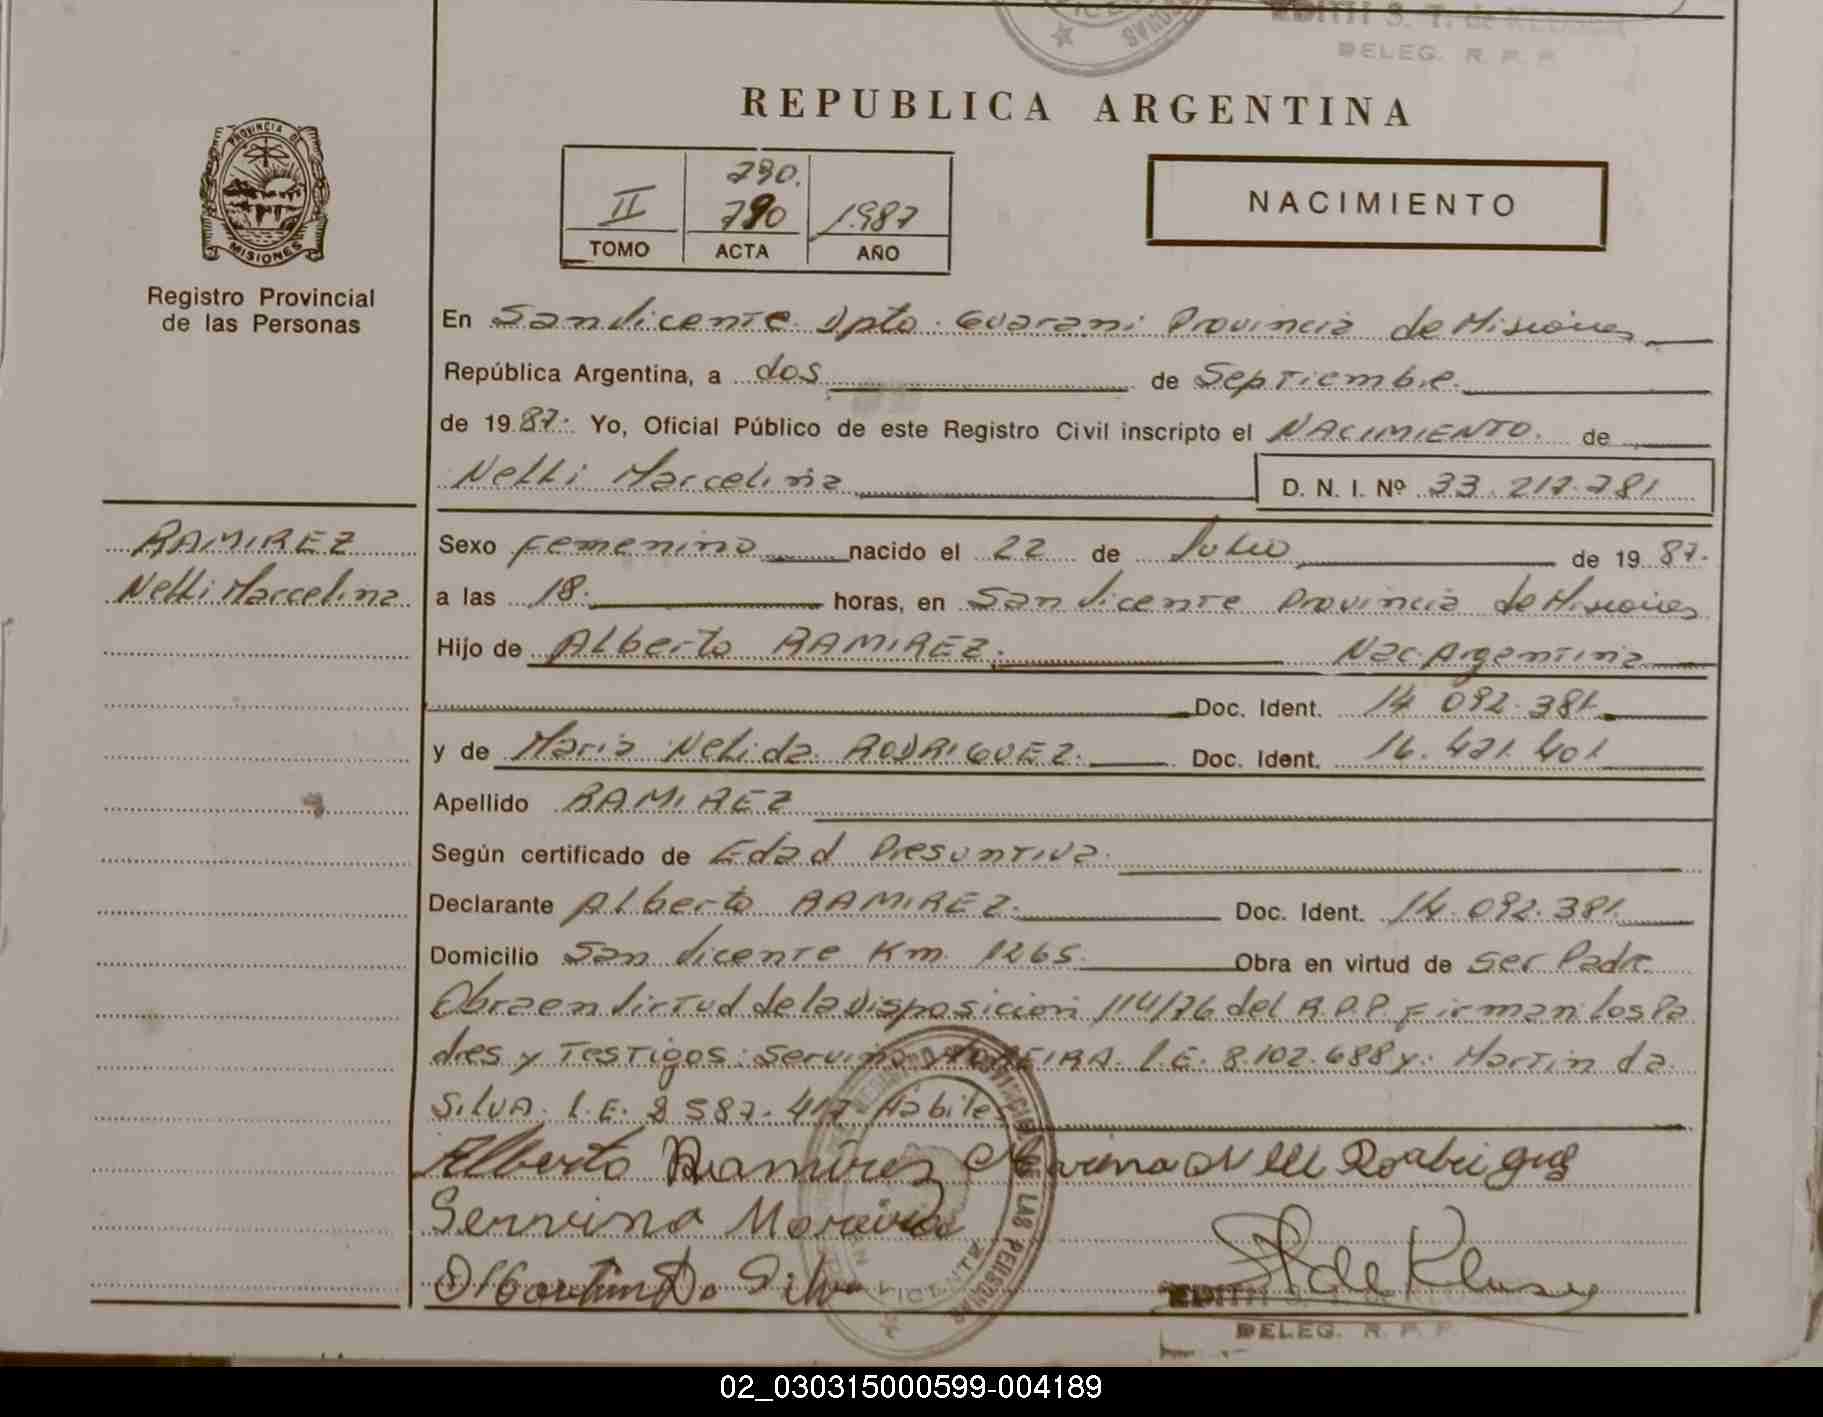 EDITH S. T. de
DELEG. R. P. P.
REPUBLICA ARGENTINA
PROVINCIA DE
MISIONES
Registro Provincial
de las Personas
790.
II 790 1.987
TOMO ACTA AÑO
NACIMIENTO
En San Vicente Dpto. Guarani Provincia de Misiones
República Argentina, a dos de Septiembre.
de 19 87. Yo, Oficial Público de este Registro Civil inscripto el NACIMIENTO. de
Nelli Marcelina D. N. I. Nº 33.217.781
RAMIREZ
Nelli Marcelina
Sexo Femenino nacido el 22 de Julio de 19 87.
a las 18. horas, en San Vicente Provincia de Misiones
Hijo de Alberto RAMIREZ. Nac. Argentina
Doc. Ident. 14.092.381.
y de Maria Nelida RODRIGUEZ. Doc. Ident. 16.421.401
Apellido RAMIREZ
Según certificado de Edad Presuntiva.
Declarante Alberto RAMIREZ. Doc. Ident. 14.092.381.
Domicilio San Vicente Km. 1265. Obra en virtud de Ser Padre
Obra en Virtud de la Disposicion 114/76 del R.P.P. Firman los Pa
dres y Testigos: Servino MOREIRA. L.E. 8.102.688 y: Martin da
SILVA. L.E. 8.587.417 Habiles
Alberto Ramirez
Servino Moreira
Martin Da Silva
DE LAS PERSONAS
EDITH S.
DELEG. R. P. P.
02_030315000599-004189